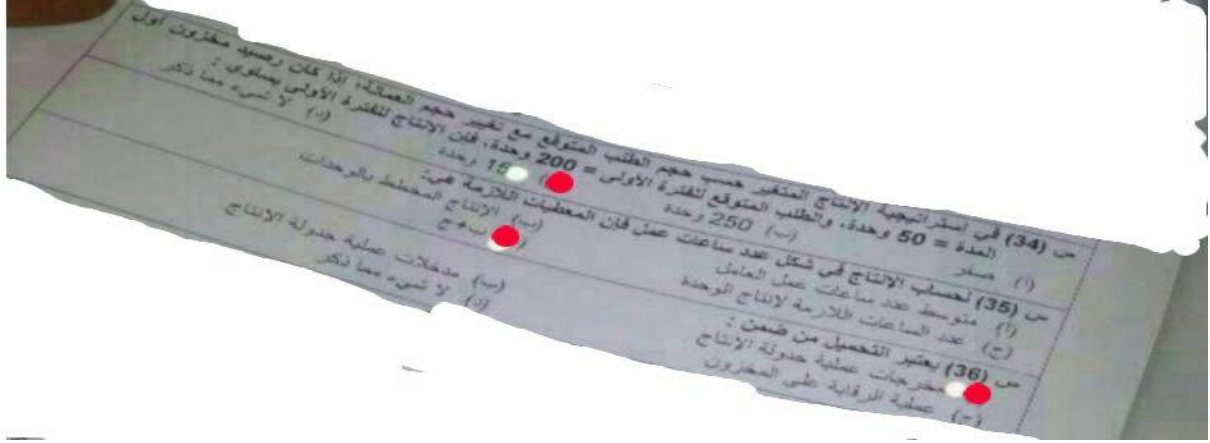 س (34) في إستراتيجية الإنتاج المتغير حسب حجم الطلب المتوقع مع تغيير حجم العمالة، إذا كان رصيد مخزون أول
المدة = 50 وحدة، والطلب المتوقع للفترة الأولى = 200 وحدة، فإن الإنتاج للفترة الأولى يساوي :
(أ) صفر (ب) 250 وحدة 15 وحدة (د) لا شيء مما ذكر
س (35) لحساب الإنتاج في شكل عدد ساعات عمل فإن المعطيات اللازمة هي:
(أ) متوسط عدد ساعات عمل العامل (ب) الإنتاج المخطط بالوحدات
(ج) عدد الساعات اللازمة لإنتاج الوحدة ب+ج
س (36) يعتبر التحميل من ضمن :
مخرجات عملية جدولة الإنتاج (ب) مدخلات عملية جدولة الإنتاج
(ج) عملية الرقابة على المخزون (د) لا شيء مما ذكر